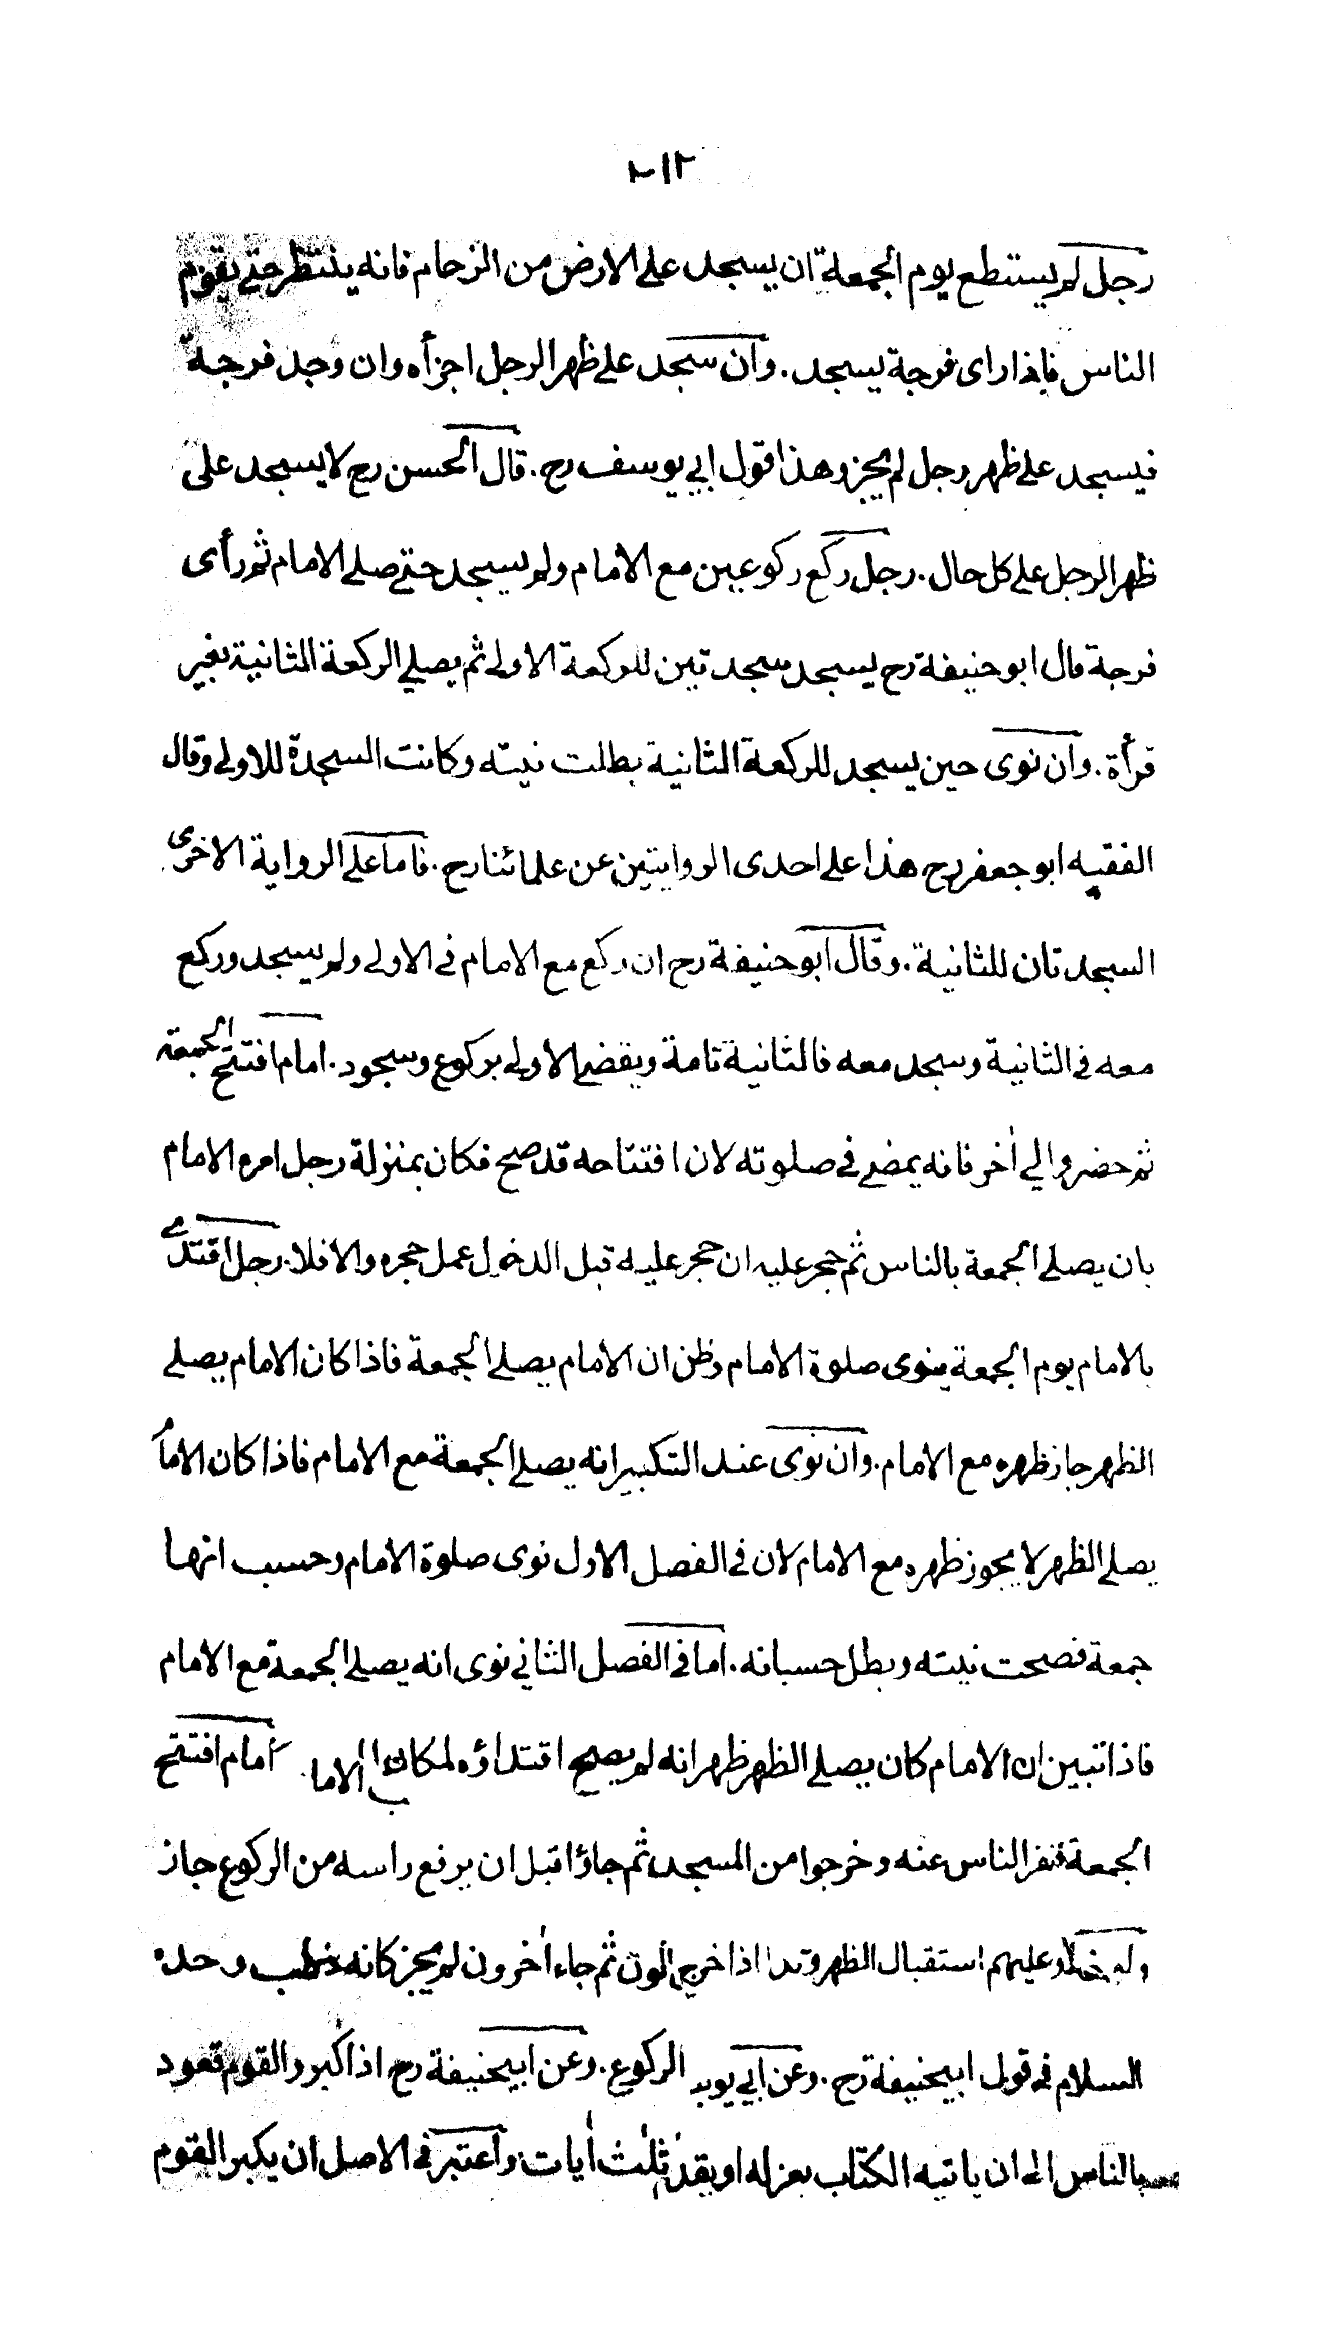 ٢١٢
رجل لم يستطع يوم الجمعة ان يسجد على الارض من الزحام فانه ينتظر حتى يقوم
الناس فاذا راى فرجة يسجد . وان سجد على ظهر الرجل اجزأه وان وجد فرجة
فيسجد على ظهر رجل لم يجز وهذا قول ابي يوسف رح . قال الحسن رح لا يسجد على
ظهر الرجل على كل حال . رجل ركع ركوعين مع الامام ولم يسجد حتى صلى الامام ثم رأى
فرجة قال ابو حنيفة رح يسجد سجدتين للركعة الاولى ثم يصلي الركعة الثانية بغير
قرأة . وان نوى حين يسجد للركعة الثانية بطلت نيته وكانت السجدة للاولى وقال
الفقيه ابو جعفر رح هذا على احدى الروايتين عن علمائنا رح . فاما على الرواية الاخرى
السجدتان للثانية . وقال ابو حنيفة رح ان ركع مع الامام في الاولى ولم يسجد وركع
معه في الثانية وسجد معه فالثانية تامة ويقضى الاولى بركوع وسجود . امام افتتح الجمعة
ثم حضر والي أخر فانه يمضى في صلوته لان افتتاحه قد صح فكان بمنزلة رجل امره الامام
بان يصلى الجمعة بالناس ثم حجر عليه ان حجر عليه قبل الدخول عمل حجره والا فلا . رجل اقتدى
بالامام يوم الجمعة ينوى صلوة الامام وظن ان الامام يصلى الجمعة فاذا كان الامام يصلى
الظهر جاز ظهره مع الامام . وان نوى عند التكبير انه يصلى الجمعة مع الامام فاذا كان الامام
يصلى الظهر لا يجوز ظهره مع الامام لان في الفصل الاول نوى صلوة الامام وحسب انها
جمعة فصحت نيته وبطل حسبانه . اما في الفصل الثاني نوى انه يصلى الجمعة مع الامام
فاذا تبين ان الامام كان يصلى الظهر ظهر انه لم يصح اقتداؤه لمكان امام افتتح
الجمعة فنفر الناس عنه وخرجوا من المسجد ثم جاؤا قبل ان يرفع راسه من الركوع جاز
وعليهم استقبال الظهر اذا خرج ثم جاء أخرون لم يجز كانه خطب وحده
السلام في قول ابيحنيفة رح . وعن ابي الركوع . وعن ابيحنيفة رح اذا كبر والقوم قعود
بالناس الى ان ياتيه الكتاب بعزله او يقدم ثلث أيات واعتبر في الاصل ان يكبر القوم